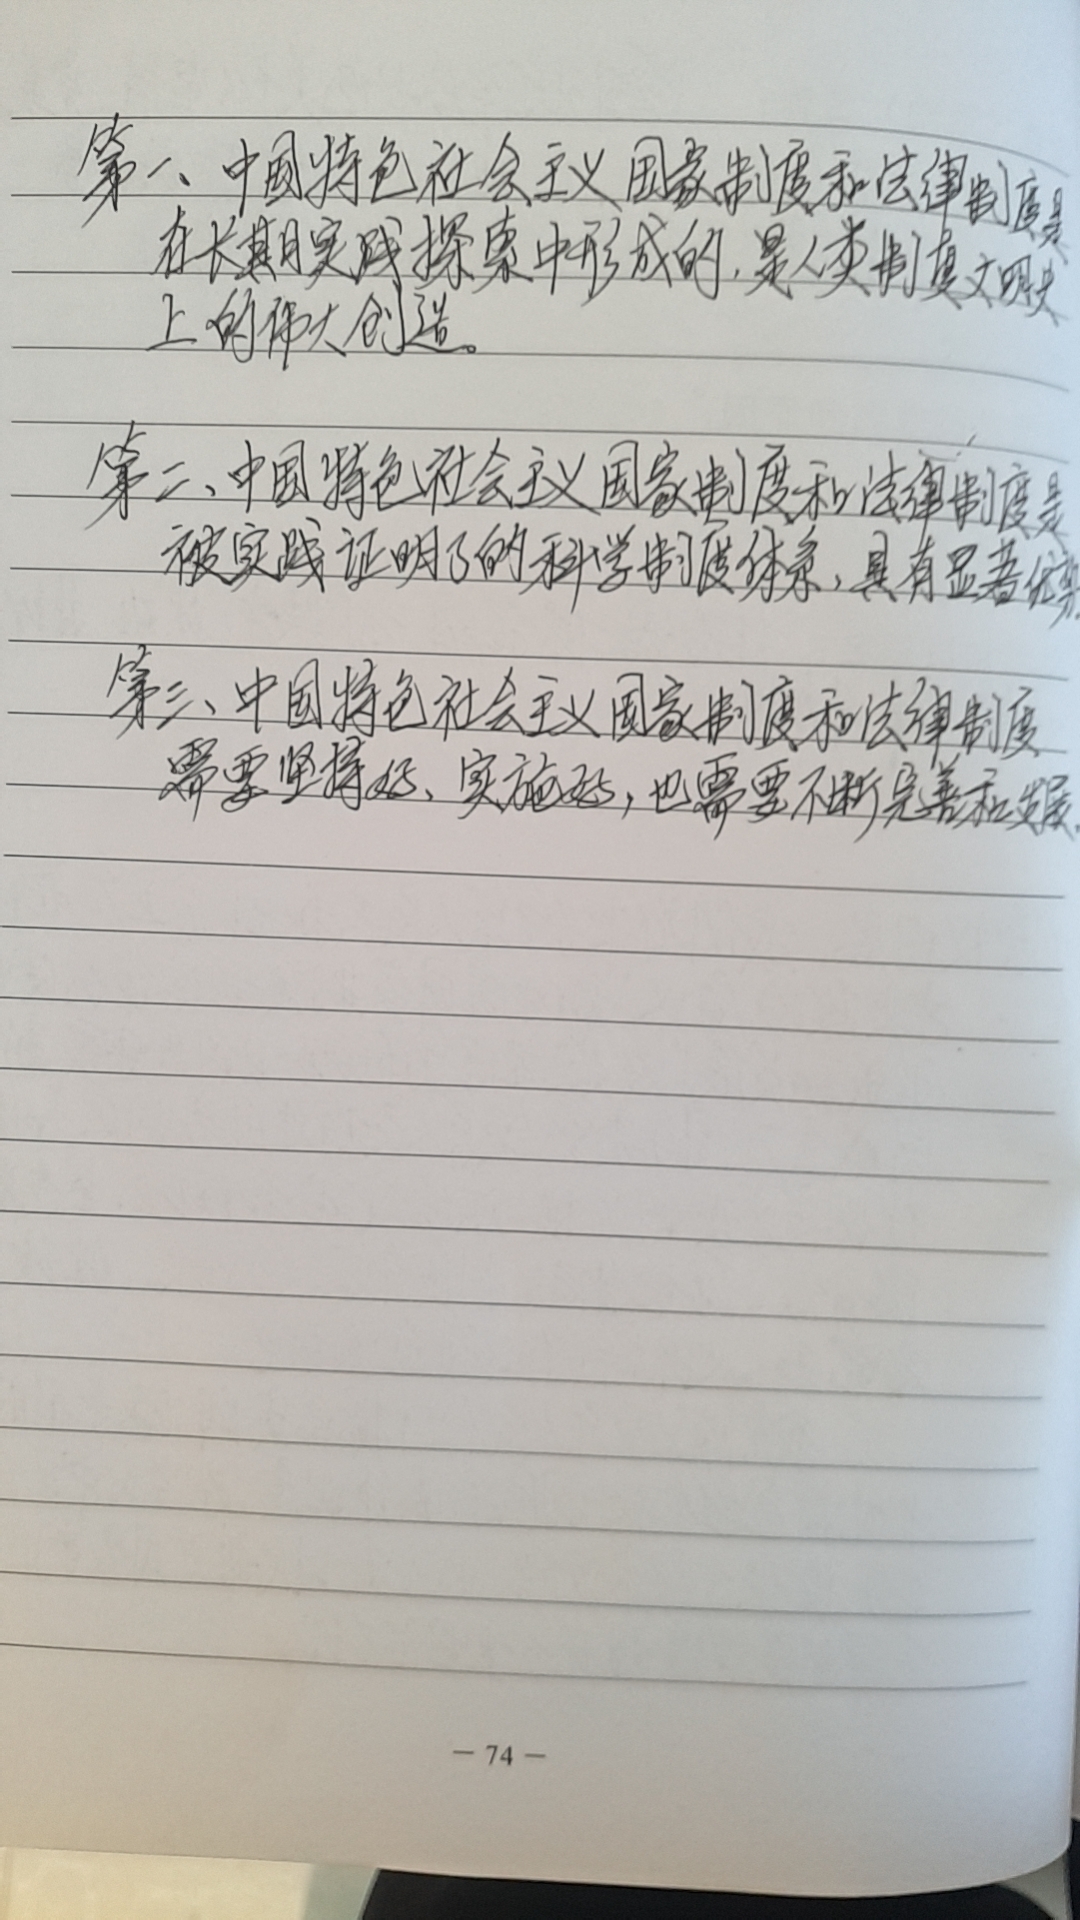 第一、中国特色社会主义国家制度和法律制度是
在长期实践探索中形成的，是人类制度文明史
上的伟大创造。
第二、中国特色社会主义国家制度和法律制度是
被实践证明了的科学制度体系，具有显著优势.
第三、中国特色社会主义国家制度和法律制度
需要坚持好、实施好，也需要不断完善和发展.
— 74 —